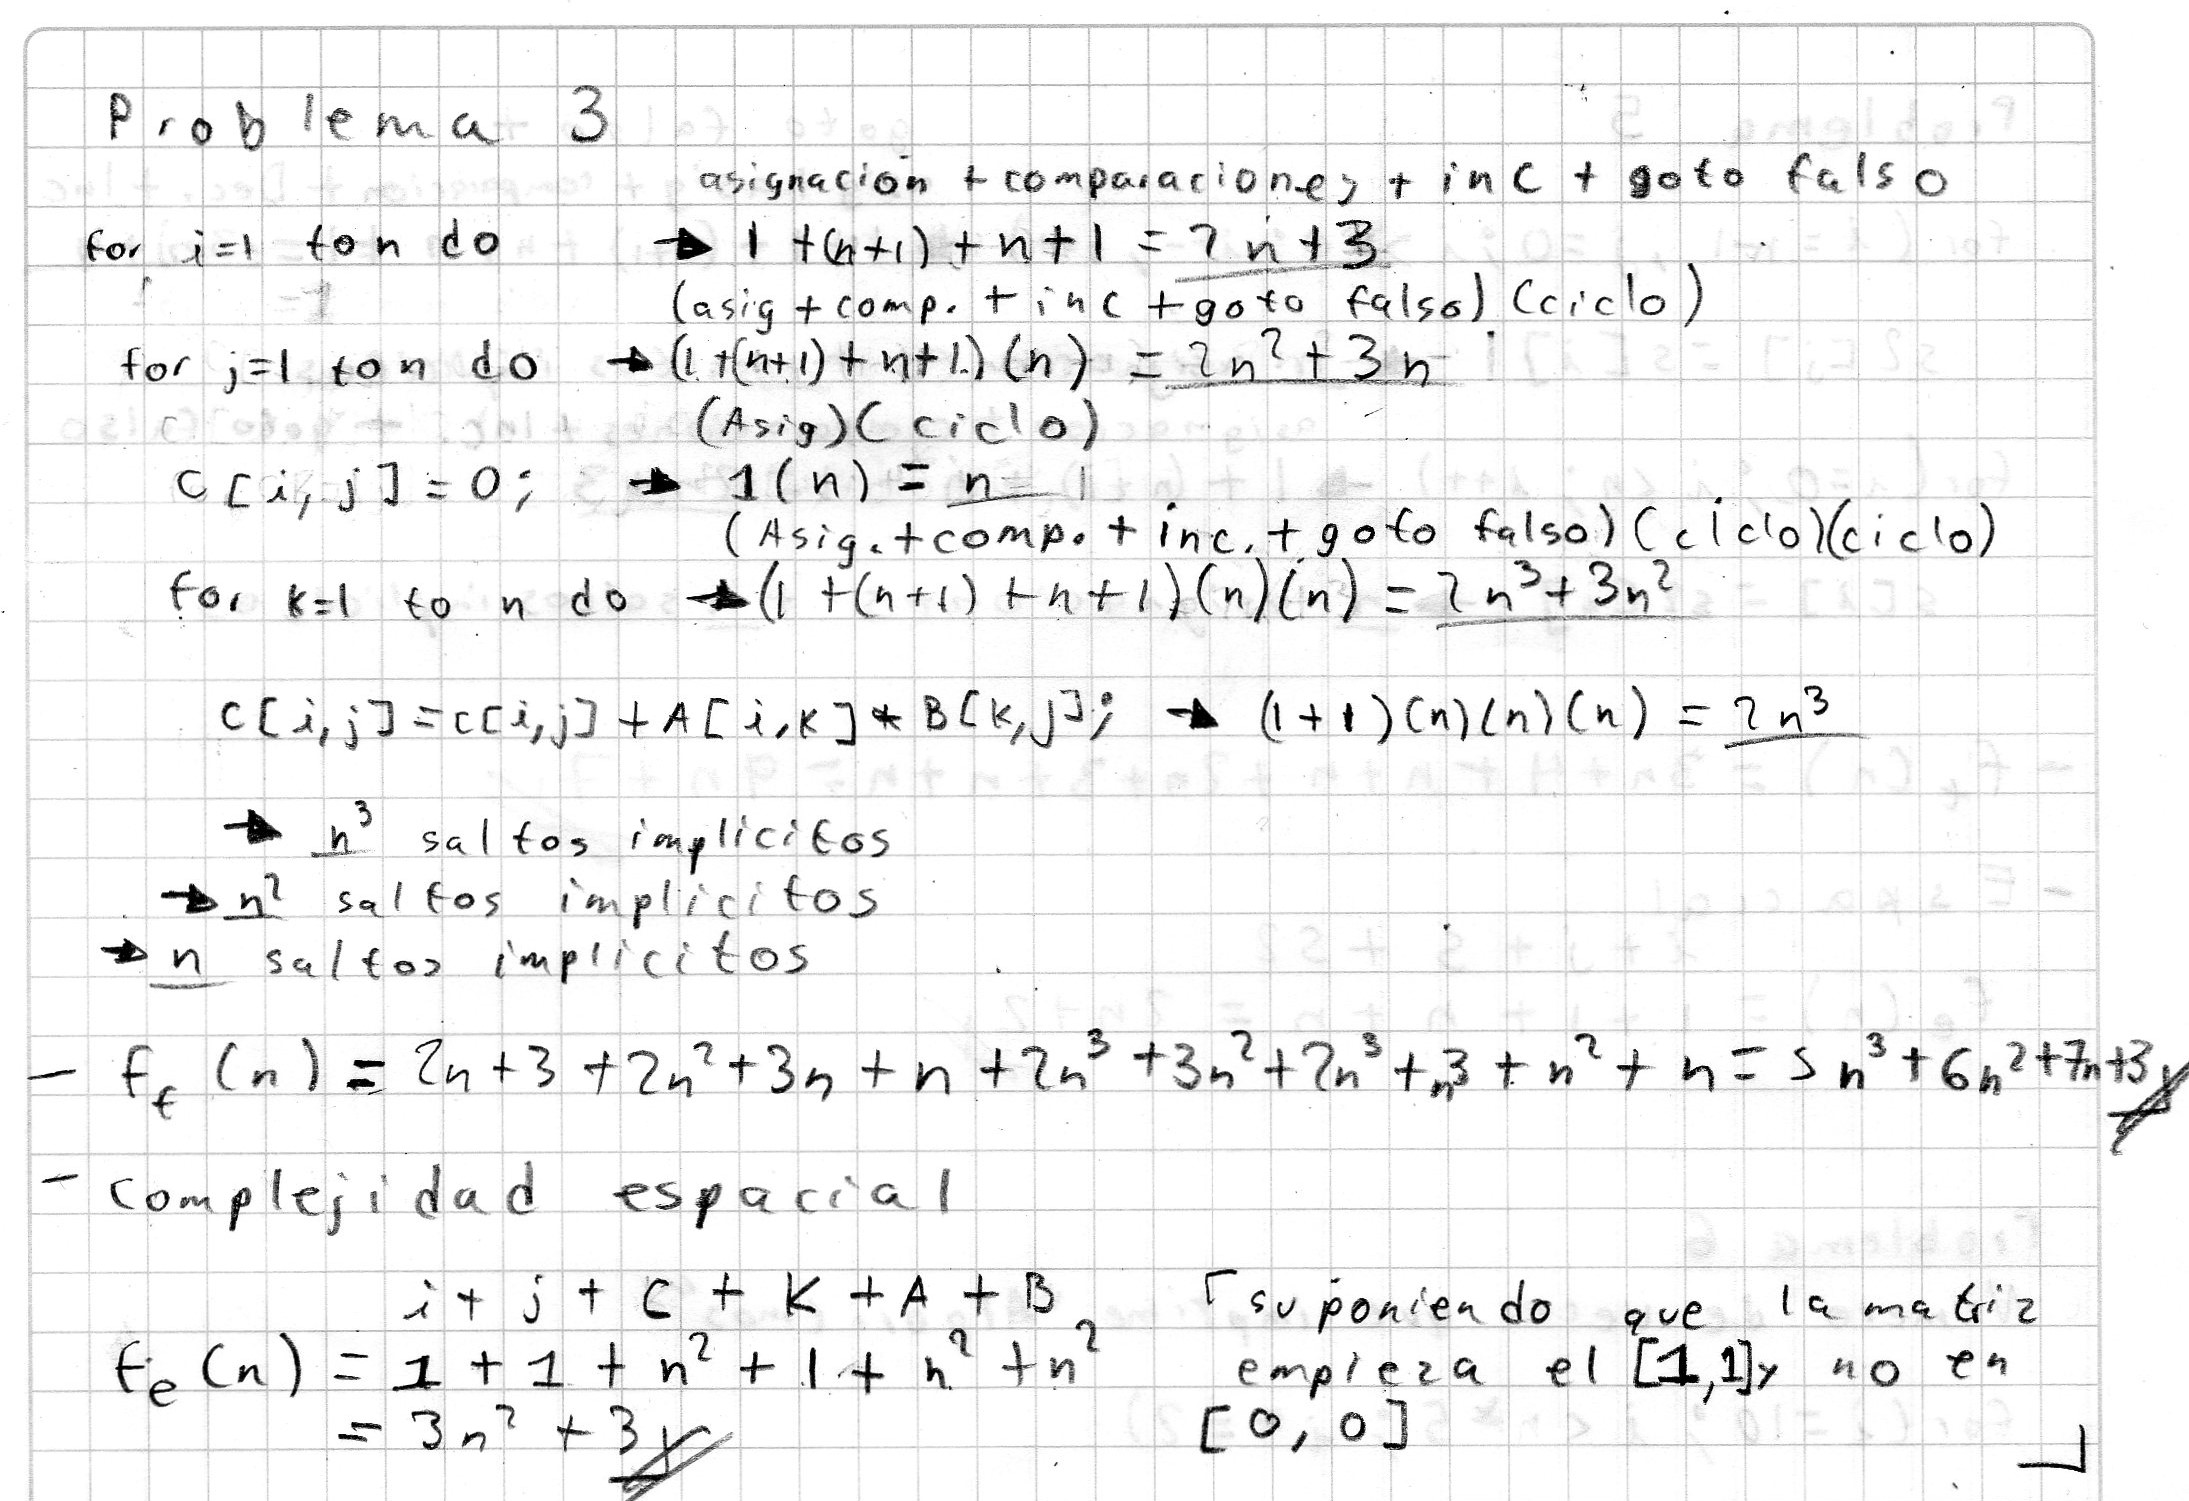 Problema 3
asignación + comparaciones + inc + goto falso
for i=1 to n do → 1 + (n+1) + n+1 = 2n+3
(asig + comp. + inc + goto falso) (ciclo)
for j=1 to n do → (1+(n+1)+n+1) (n) = 2n² + 3n
(Asig)(ciclo)
C[i, j] = 0; → 1(n) = n
(Asig. + comp. + inc. + goto falso) (ciclo)(ciclo)
for k=1 to n do → (1 + (n+1) + n+1) (n)(n) = 2n³ + 3n²
C[i,j] = C[i,j] + A[i,k] * B[k,j]; → (1+1)(n)(n)(n) = 2n³
→ n³ saltos implicitos
→ n² saltos implicitos
→ n saltos implicitos
- ft (n) = 2n+3 + 2n² + 3n + n + 2n³ + 3n² + 2n³ + n³ + n² + n = 5n³ + 6n² + 7n + 3
- Complejidad espacial
i + j + C + K + A + B
fe (n) = 1 + 1 + n² + 1 + n² + n²
= 3n² + 3
suponiendo que la matriz
empieza el [1,1] y no en
[0, 0]